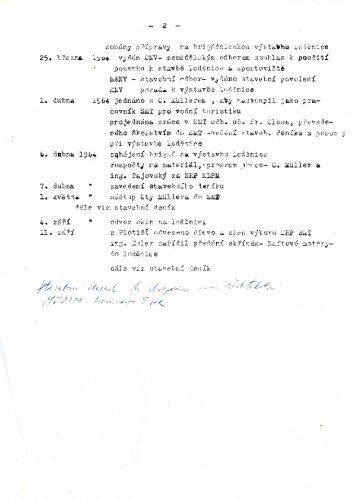 - 2 -
konány přípravy na brigádnickou výstavbu loděnice
25. března 1964 vydán ONV- zemědělským odborem souhlas k použití
pozemku k stavbě loděnice a sportoviště
MěNV - stavební odbor- vydáno stavební povolení
ZNV porada k výstavbě loděnice
1. dubna 1964 jednáno s O. Müllerem , aby nastoupil jako pra-
covník SMT pro vodní turistiku
projednána práce v SMT odb. uč. Fr. Closa, převede-
ného školstvím do SMT -vedení staveb. deníku a pomoc p
ři výstavbě loděnice
6. dubna 1964 zahájení brigád na výstavbu loděnice
rozpočty na materiál, program prací- O. Müller a
ing. Tajovský za SRP KDPM
7. dubna " zavedení stavebního deníku
1. května " nástup Oty Müllera do SMT
dále viz stavební deník
4. září " odvoz oken na loděnici
11. září z Plotišt odvezeno dřevo a člen výboru SRP SMT
ing. Zaler zařídil předání skříněk- Naftové motory-
do loděnice
dále viz stavební deník
Stavební deník k